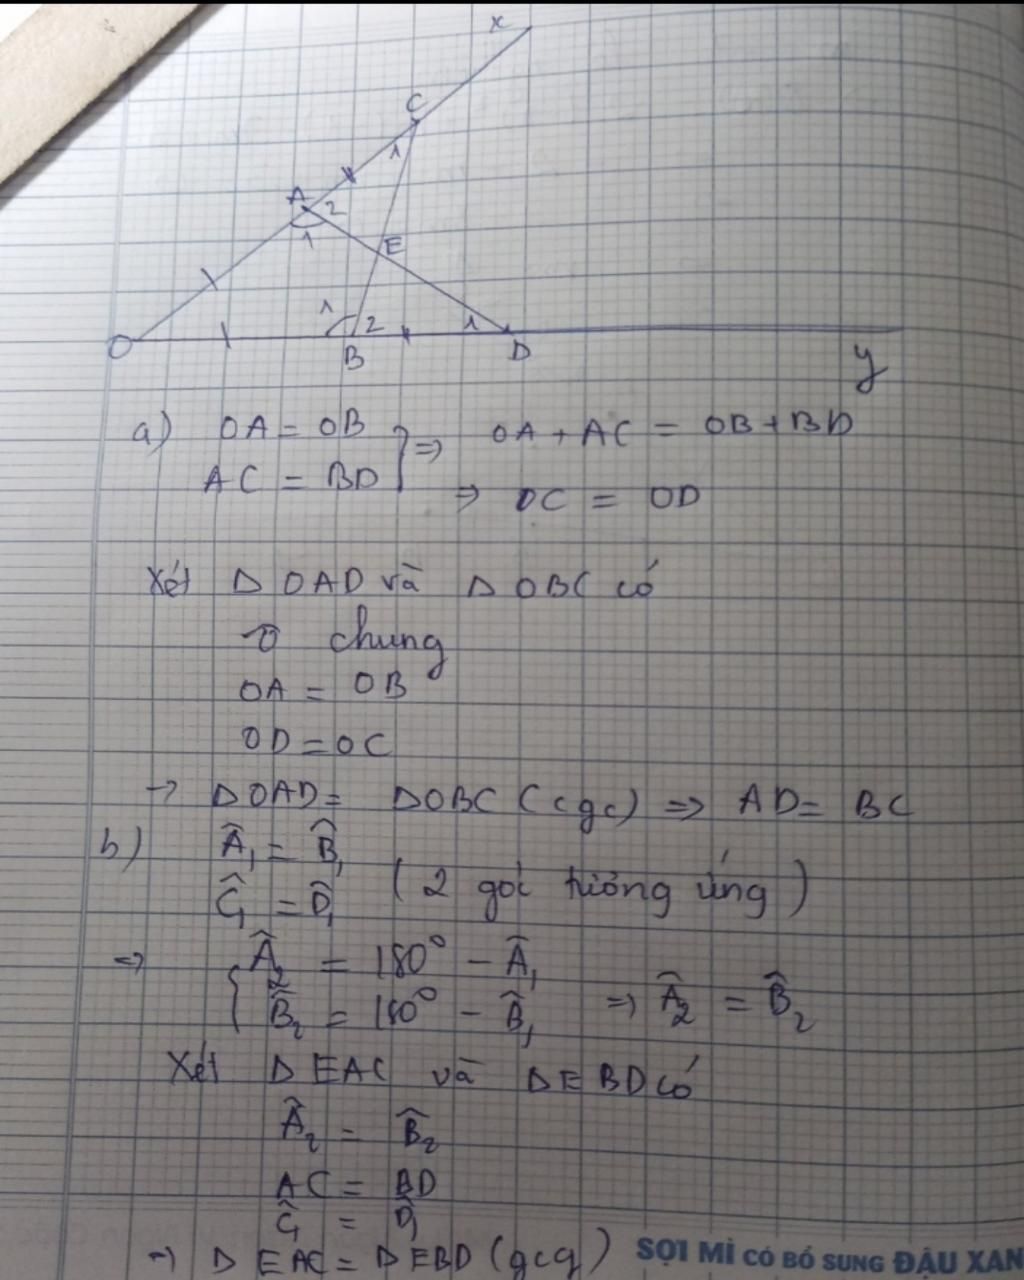 x
C
1
A 2
1
E
1 2 1
O B D
y
a) OA = OB } => OA + AC = OB + BD
AC = BD => OC = OD
Xét Δ OAD và Δ OBC có
Ô chung
OA = OB
OD = OC
-> ΔOAD = ΔOBC (cgc) => AD = BC
b) Â₁ = B̂₁
Ĉ₁ = D̂₁ (2 góc tương ứng)
=> { Â₂ = 180° - Â₁
B̂₂ = 180° - B̂₁ => Â₂ = B̂₂
Xét Δ EAC và Δ EBD có
Â₂ = B̂₂
AC = BD
Ĉ₁ = D̂₁
-> Δ EAC = Δ EBD (gcg)
SỢI MÌ CÓ BỔ SUNG ĐẬU XAN